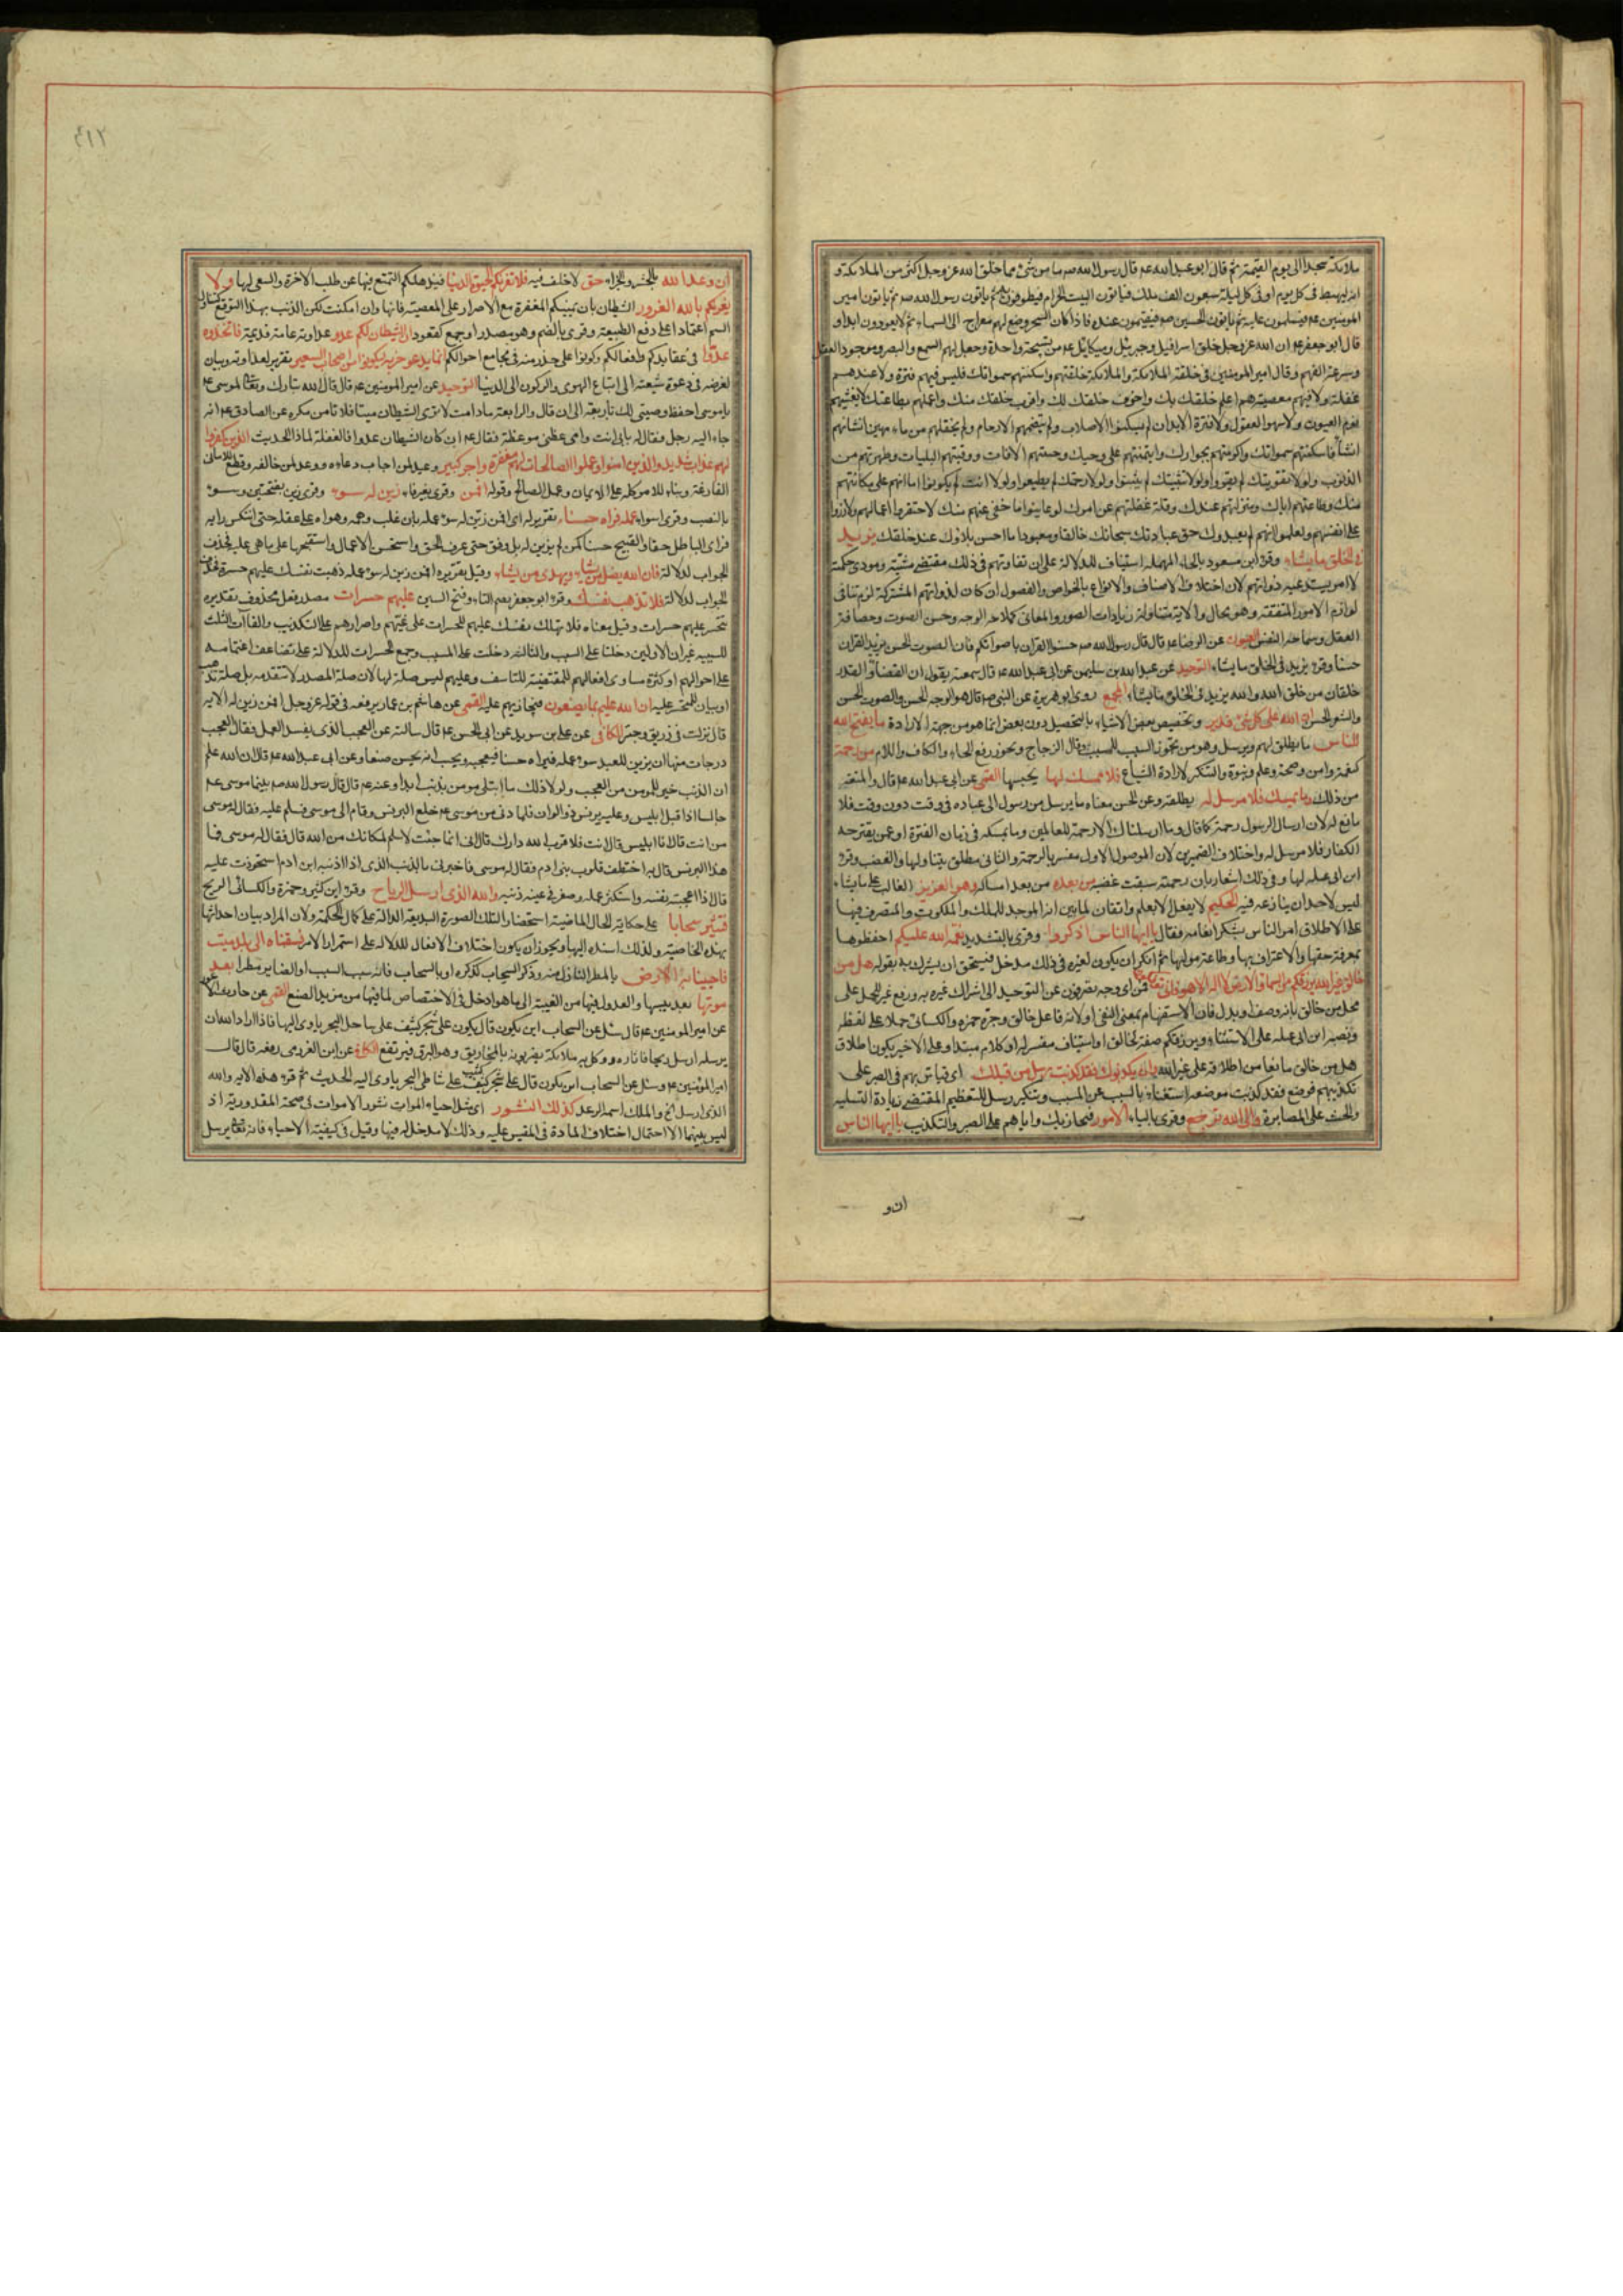 ملائكة سجدا الى يوم القيمة ثم قال ابو عبد الله عم قال رسول الله صم ما من شئ مما خلق الله عز وجل اكثر من الملائكة و
انه ليهبط فى كل يوم او فى كل ليلة سبعون الف ملك فياتون البيت الحرام فيطوفون به ثم ياتون رسول الله صم ثم ياتون امير
المومنين عم فيسلمون عليه ثم ياتون الحسين صم فيقيمون عنده فاذا كان السحر وضع لهم معراج الى السماء ثم لا يعودون ابدا و
قال ابو جعفر عم ان الله عز وجل خلق اسرافيل وجبرئيل وميكائيل عم من تسبيحة واحدة وجعل لهم السمع والبصر وموجود العقل
وسرعة الفهم وقال امير المومنين فى خلقة الملائكة والملائكة خلقتهم واسكنتهم سمواتك فليس فيهم فترة ولا عندهم
غفلة ولا فيهم معصية هم اعلم خلقك بك واخوف خلقك لك واقرب خلقك منك واعملهم بطاعتك لا يغشيهم
نوم العيون ولا سهو العقول ولا فترة الابدان لم يسكنوا الاصلاب ولم تضمهم الارحام ولم تخلقهم من ماء مهين انشأتهم
انشأ فاسكنتهم سمواتك واكرمتهم بجوارك وايتمنتهم على وحيك وجنبتهم الافات ووقيتهم البليات وطهرتهم من
الذنوب ولولا تقويتك لم يقووا ولولا تثبيتك لم يثبتوا ولولا رحمتك لم يطيعوا ولولا انت لم يكونوا اما انهم على مكانتهم
منك وطاعتهم اياك ومنزلتهم عندك وقلة غفلتهم عن امرك لو عاينوا ما خفى عنهم منك لاحتقروا اعمالهم ولازروا
على انفسهم ولعلموا انهم لم يعبدوك حق عبادتك سبحانك خالقا ومعبودا ما احسن بلاؤك عند خلقك يزيد
فى الخلق ما يشاء وقرء ابن مسعود بالحاء المهملة استيناف للدلالة على ان تفاوتهم فى ذلك مقتضى مشيته ومودى حكمته
لا امر يستدعيه ذواتهم لان اختلاف الاصناف والانواع بالخواص والفصول ان كان لذواتهم المشتركة لزم تنافى
لوازم الامور المتفقة وهو محال والاية متناولة زيادات الصور والمعانى كملاحة الوجه وحسن الصوت وحصافة
العقل وسماحة النفس العيون عن الرضا عم قال قال رسول الله صم حسنوا القران باصواتكم فان الصوت الحسن يزيد القران
حسنا وقرء يزيد فى الخلق ما يشاء التوحيد عن عبد الله بن سليمن عن ابى عبد الله عم قال سمعته يقول ان القضاء والقدر
خلقان من خلق الله والله يزيد فى الخلق ما يشاء المجمع روى ابو هريرة عن النبى صم قال هو الوجه الحسن والصوت الحسن
والشعر الحسن ان الله على كل شئ قدير وتخصيص بعض الاشياء بالتحصيل دون بعض انما هو من جهة الارادة ما يفتح الله
للناس ما يطلق لهم ويرسل وهو من تجوز السبب للمسبب وقال الزجاج ويجوز رفع الحاء والكاف واللام من رحمة
كنعمة وامن وصحة وعلم ونبوة والتنكير لارادة الشياع فلا ممسك لها يحبسها القمى عن ابى عبد الله عم قال والمتعة
من ذلك وما يمسك فلا مرسل له يطلقه وعن الحسن معناه ما يرسل من رسول الى عباده فى وقت دون وقت فلا
مانع له لان ارسال الرسول رحمة كما قال وما ارسلناك الا رحمة للعالمين وما يمسكه فى زمان الفترة او عمن يقترحه
الكفار فلا مرسل له واختلاف الضميرين لان الموصول الاول مفسر بالرحمة والثانى مطلق يتناولها والغضب وقرء
ابن ابى عبله لها وفى ذلك اشعار بان رحمته سبقت غضبه من بعده من بعد امساكه وهو العزيز الغالب على ما يشاء
ليس لاحد ان ينازعه فيه الحكيم لا يفعل الا بعلم واتقان لما بين انه الموجد للملك والملكوت والمتصرف فيها
على الاطلاق امر الناس بشكر انعامه فقال يا ايها الناس اذكروا وقرى بالتشديد نعمة الله عليكم احفظوها
بمعرفة حقها والاعتراف بها وطاعة موليها ثم انكر ان يكون لغيره فى ذلك مدخل فيستحق ان يشرك به بقوله هل من
خالق غير الله يرزقكم من السماء والارض لا اله الا هو فانى تؤفكون فمن اى وجه تصرفون عن التوحيد الى اشراك غيره به ورفع غير للحمل على
محل من خالق بانه وصف او بدل فان الاستفهام بمعنى النفى او لانه فاعل خالق وجره حمزه والكسائى حملا على لفظه
ونصبه ابن ابى عبله على الاستثناء ويرزقكم صفة لخالق او استيناف مفسر له او كلام مبتدا وعلى الاخير يكون اطلاق
هل من خالق مانعا من اطلاقه على غير الله وان يكذبوك فقد كذبت رسل من قبلك اى فتاس بهم فى الصبر على
تكذيبهم فوضع فقد كذبت موضعه استغناء بالسبب عن المسبب وتنكير رسل للتعظيم المقتضى زيادة التسلية
والحث على المصابرة والى الله ترجع وقرى بالياء الامور فيجازيك واياهم على الصبر والتكذيب يا ايها الناس
ان و
٤١٢
ان وعد الله بالحشر والجزاء حق لا خلف فيه فلا تغرنكم الحيوة الدنيا فيذهلكم التمتع بها عن طلب الاخرة والسعى لها ولا
يغرنكم بالله الغرور الشيطان بان يمنيكم المغفرة مع الاصرار على المعصية فانها وان امكنت لكن الذنب بهذا التوقع كتناول
السم اعتمادا على دفع الطبيعة وقرى بالضم وهو مصدر او جمع كقعود ان الشيطان لكم عدو عداوة عامة قديمة فاتخذوه
عدوا فى عقايدكم وافعالكم وكونوا على حذر منه فى مجامع احوالكم انما يدعو حزبه ليكونوا من اصحاب السعير تقرير لعداوته وبيان
لغرضه فى دعوة شيعته الى اتباع الهوى والركون الى الدنيا التوحيد عن امير المومنين عم قال قال الله تبارك وتعالى لموسى عم
يا موسى احفظ وصيتى لك باربعة الى ان قال والرابعة ما دامت لا ترى الشيطان ميتا فلا تامن مكره عن الصادق عم انه
جاء اليه رجل فقال له بابى انت وامى عظنى موعظة فقال عم ان كان الشيطان عدوا فالغفلة لماذا الحديث الذين كفروا
لهم عذاب شديد والذين امنوا وعملوا الصالحات لهم مغفرة واجر كبير وعيد لمن اجاب دعاءه ووعد لمن خالفه وقطع للامانى
الفارغة وبناء للامر كله على الايمان وعمل الصالح وقوله افمن وقرى بغير فاء زين له سوء وقرى زين بفتحتين وسوء
بالنصب وقرى اسواء عمله فراه حسنا تقرير له اى افمن زين له سوء عمله بان غلب وهمه وهواه على عقله حتى انتكس رايه
فراى الباطل حقا والقبيح حسنا كمن لم يزين له بل وفق حتى عرف الحق واستحسن الاعمال واستقبحها على ما هى عليه فحذف
الجواب لدلالة فان الله يضل من يشاء ويهدى من يشاء وقيل تقريره افمن زين له سوء عمله ذهبت نفسك عليهم حسرة فحذف
الجواب لدلالة فلا تذهب نفسك وقرء ابو جعفر بضم التاء وفتح السين عليهم حسرات مصدر بفعل محذوف تقديره
تتحسر عليهم حسرات وقيل معناه فلا تهلك نفسك عليهم للحسرات على غيهم واصرارهم على التكذيب والفاآت الثلث
للسببيه غير ان الاوليين دخلتا على السبب والثالثة دخلت على المسبب وجمع الحسرات للدلالة على تضاعف اغتمامه
على احوالهم او كثرة مساوى افعالهم المقتضية للتاسف وعليهم ليس صلة لها لان صلة المصدر لا تتقدمه بل صلة تذهب
او بيان للمتحسر عليه ان الله عليم بما يصنعون فيجازيهم عليه القمى عن هاشم بن عمار يرفعه فى قوله عز وجل افمن زين له الاية
قال نزلت فى زريق وحبتر الكافى عن على بن سويد عن ابى الحسن عم قال سالته عن العجب الذى يفسد العمل فقال العجب
درجات منها ان يزين للعبد سوء عمله فيراه حسنا فيعجبه ويحسب انه يحسن صنعا وعن ابى عبد الله عم قال ان الله علم
ان الذنب خير للمومن من العجب ولولا ذلك ما ابتلى مومن بذنب ابدا وعنه عم قال قال رسول الله صم بينما موسى عم
جالسا اذ اقبل ابليس وعليه برنس ذو الوان فلما دنى من موسى عم خلع البرنس وقام الى موسى فسلم عليه فقال له موسى
من انت قال انا ابليس قال انت فلا قرب الله دارك قال انى انما جئت لاسلم لمكانك من الله قال فقال له موسى فما
هذا البرنس قال به اختطف قلوب بنى ادم فقال له موسى فاخبرنى بالذنب الذى اذا اذنبه ابن ادم استحوذت عليه
قال اذا اعجبته نفسه واستكثر عمله وصغر فى عينه ذنبه والله الذى ارسل الرياح وقرء ابن كثير وحمزة والكسائى الريح
فتثير سحابا على حكاية الحال الماضية استحضارا لتلك الصورة البديعة الدالة على كمال الحكمة ولان المراد بيان احداثها
بهذه الخاصية ولذلك اسنده اليها ويجوز ان يكون اختلاف الافعال للدلالة على استمرار الامر فسقناه الى بلد ميت
فاحيينا به الارض بالمطر النازل منه وذكر السحاب كذكره او بالسحاب فانه سبب السبب او الصاير مطرا بعد
موتها بعد يبسها والعدول فيها من الغيبة الى ما هو ادخل فى الاختصاص لما فيها من مزيد الصنع القمى عن حارث الاعور
عن امير المومنين عم قال سئل عن السحاب اين يكون قال يكون على شجر كثيف على ساحل البحر ياوى اليها فاذا اراد الله ان
يرسله ارسل ريحا فاثاره ووكل به ملائكة يضربونه بالمخاريق وهو البرق فيرتفع الكافى عن ابن العرزمى رفعه قال قال
امير المؤمنين عم وسئل عن السحاب اين يكون قال على شجر كثيف على شاطى البحر ياوى اليه الحديث ثم قرء هذه الاية والله
الذى ارسل الخ والملك اسمه الرعد كذلك النشور اى مثل احياء الموات نشور الاموات فى صحة المقدورية اذ
ليس بينهما الا احتمال اختلاف المادة فى المقيس عليه وذلك لا مدخل له فيها وقيل فى كيفية الاحياء فانه تعالى يرسل